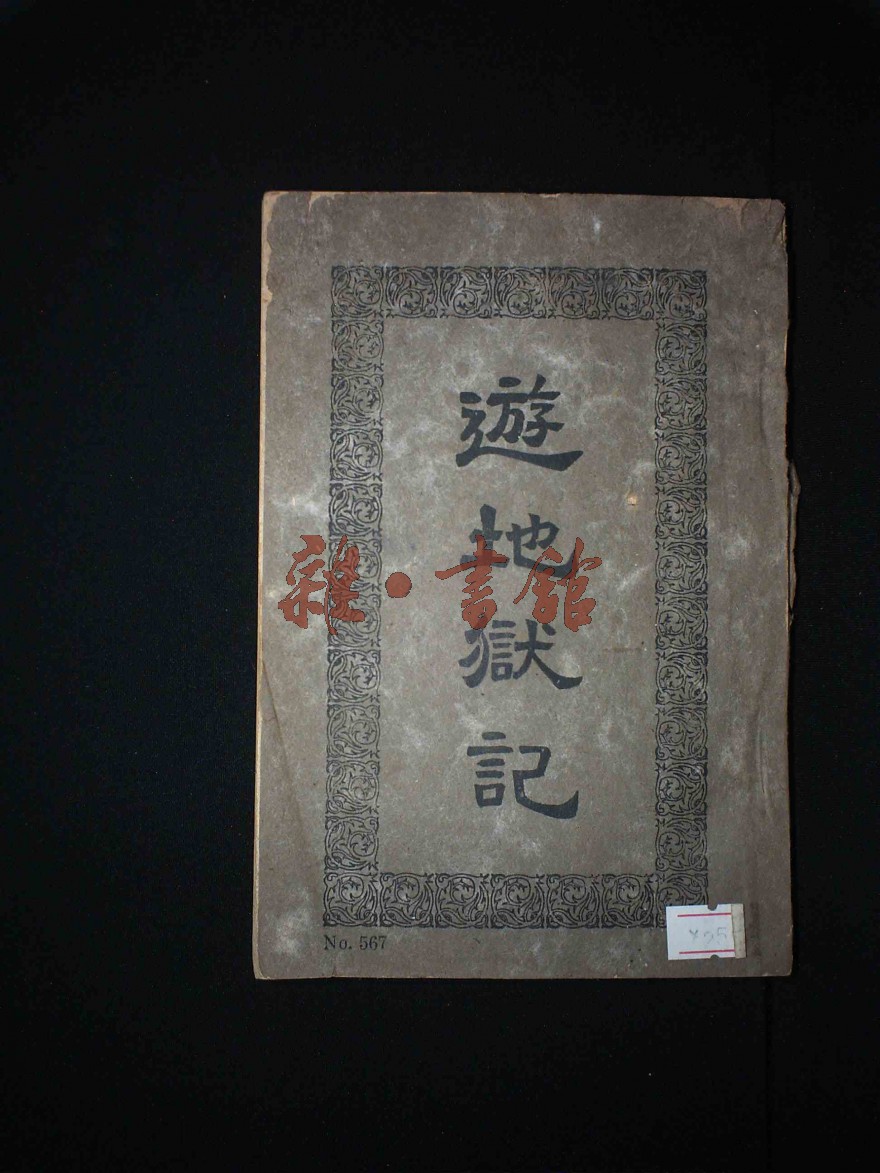 遊地獄記
雜·書館
No. 567